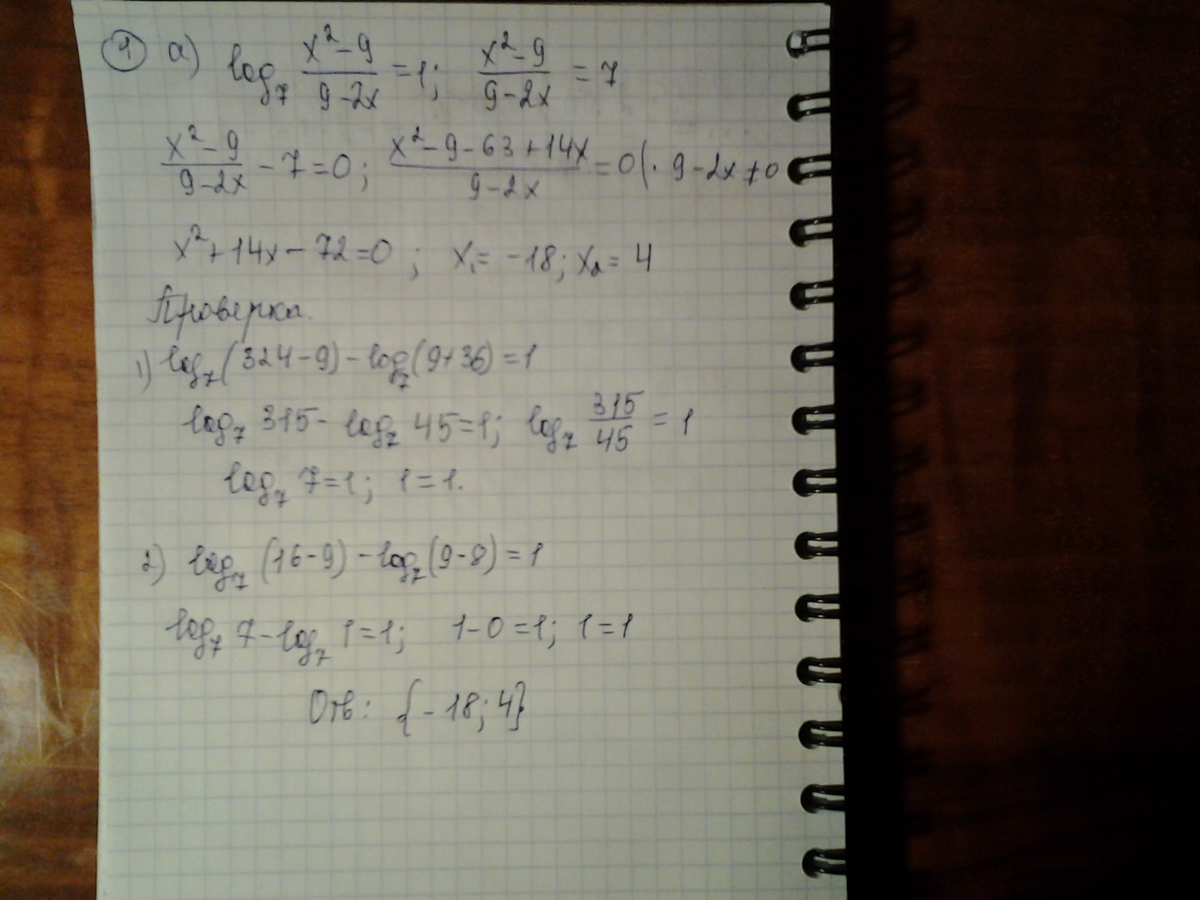 ① а) log₇ (x²-9)/(9-2x) = 1; (x²-9)/(9-2x) = 7
(x²-9)/(9-2x) - 7 = 0; (x²-9-63+14x)/(9-2x) = 0 (· 9-2x ≠ 0
x²+14x-72=0; x₁= -18; x₂= 4
Проверка.
1) log₇(324-9) - log₇(9+36) = 1
log₇ 315 - log₇ 45 = 1; log₇ 315/45 = 1
log₇ 7 = 1; 1 = 1.
2) log₇ (16-9) - log₇(9-8) = 1
log₇ 7 - log₇ 1 = 1; 1-0 = 1; 1 = 1
Отв: {-18; 4}